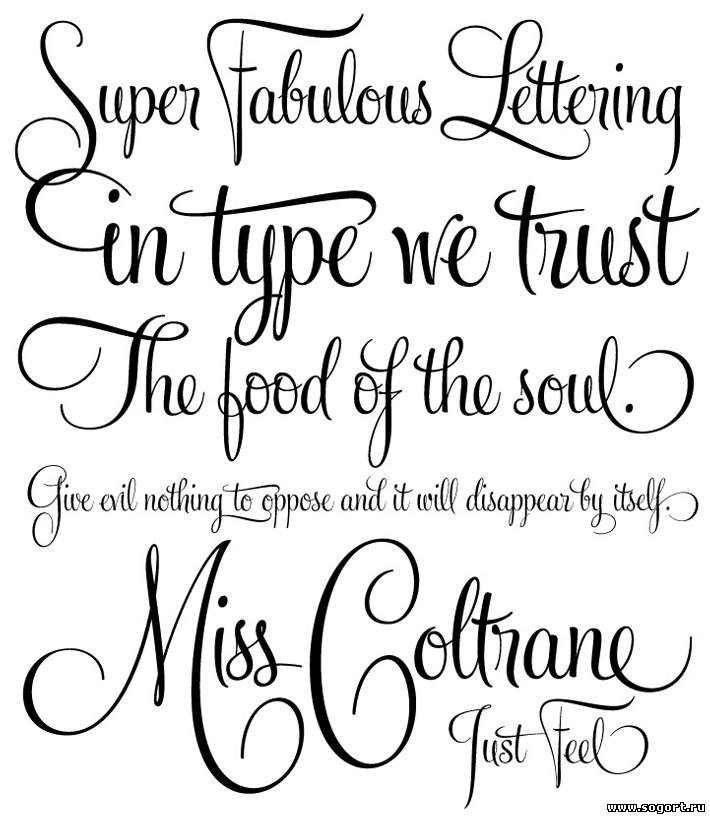 Super Fabulous Lettering
in type we trust
The food of the soul.
Give evil nothing to oppose and it will disappear by itself.
Miss Coltrane
Just Feel
www.sogort.ru